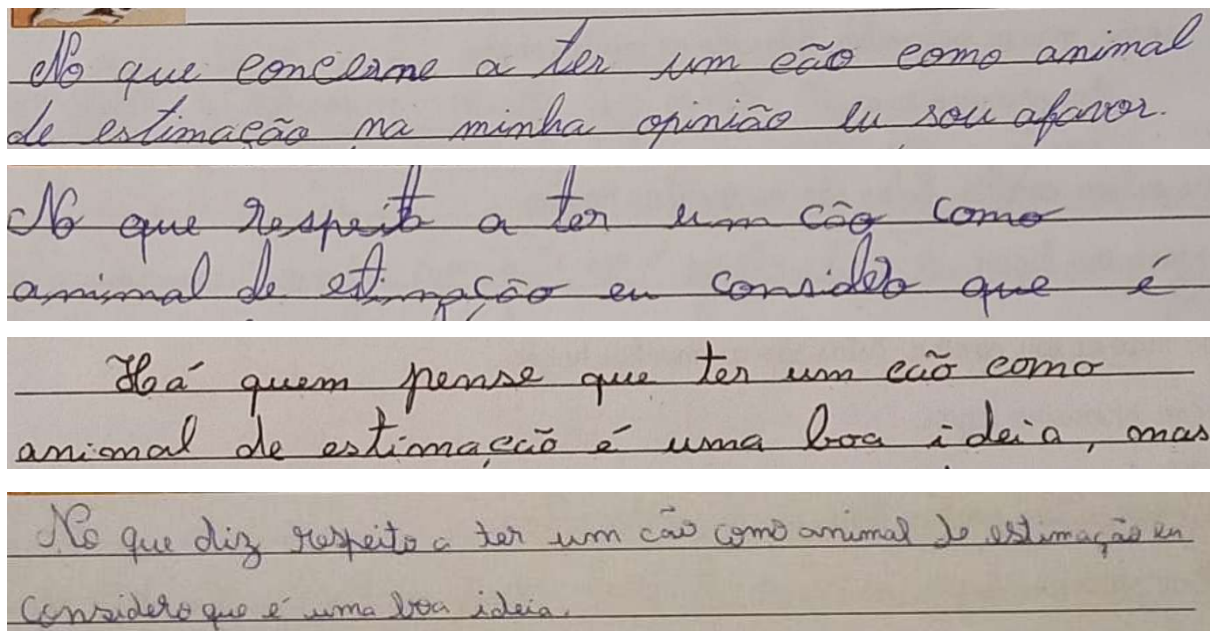 No que concerne a ter um cão como animal
de estimação na minha opinião eu sou afavor.
No que respeito a ter um cão como
animal de estimação eu considero que é
Há quem pense que ter um cão como
animal de estimação é uma boa ideia, mas
No que diz respeito a ter um cão como animal de estimação eu
considero que é uma boa ideia.